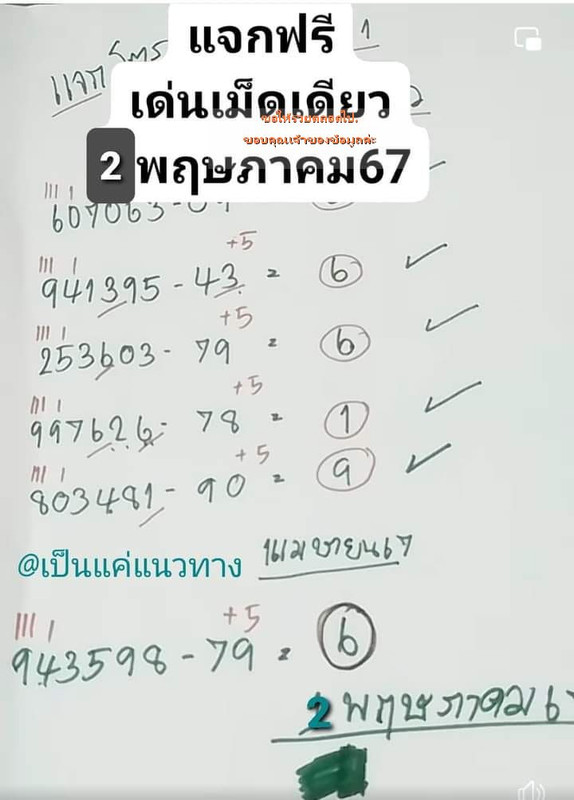 แจกฟรี
แจก สูตร 1
เด่นเม็ดเดียว
ขอให้รวยตลอดไป.
ขอบคุณเจ้าของข้อมูลค่ะ
2 พฤษภาคม67
607063-
+5
941395 - 43 = 6
+5
253603 - 79 = 6
+5
997626 - 78 = 1
+5
803481 - 90 = 9
1เมษายน67
@เป็นแค่แนวทาง
+5
943598 - 79 = 6
2 พฤษภาคม 6